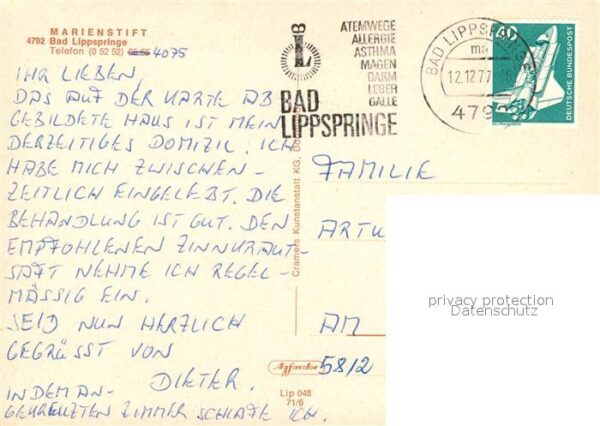 MARIENSTIFT
4792 Bad Lippspringe
Telefon (0 52 52) 4075
IHR LIEBEN,
DAS AUF DER KARTE AB
GEBILDETE HAUS IST MEIN
DERZEITIGES DOMIZIL. ICH
HABE MICH ZWISCHEN-
ZEITLICH EINGELEBT. DIE
BEHANDLUNG IST GUT. DEN
EMPFOHLENEN ZINNKRAUT-
SAFT NEHME ICH REGEL-
MÄSSIG EIN.
SEID NUN HERZLICH
GEGRÜSST VON
DIETER.
IN DEM AN-
GEKREUZTEN ZIMMER SCHLAFE ICH.
Cramers Kunstanstalt KG,
Agfacolor
Lip 048
71/6
ATEMWEGE
ALLERGIE
ASTHMA
MAGEN
DARM
LEBER
GALLE
BAD
LIPPSPRINGE
BAD LIPPSPRINGE
ma
12.12.77
479
40
DEUTSCHE BUNDESPOST
FAMILIE
ARTU
AM
5812
privacy protection
Datenschutz